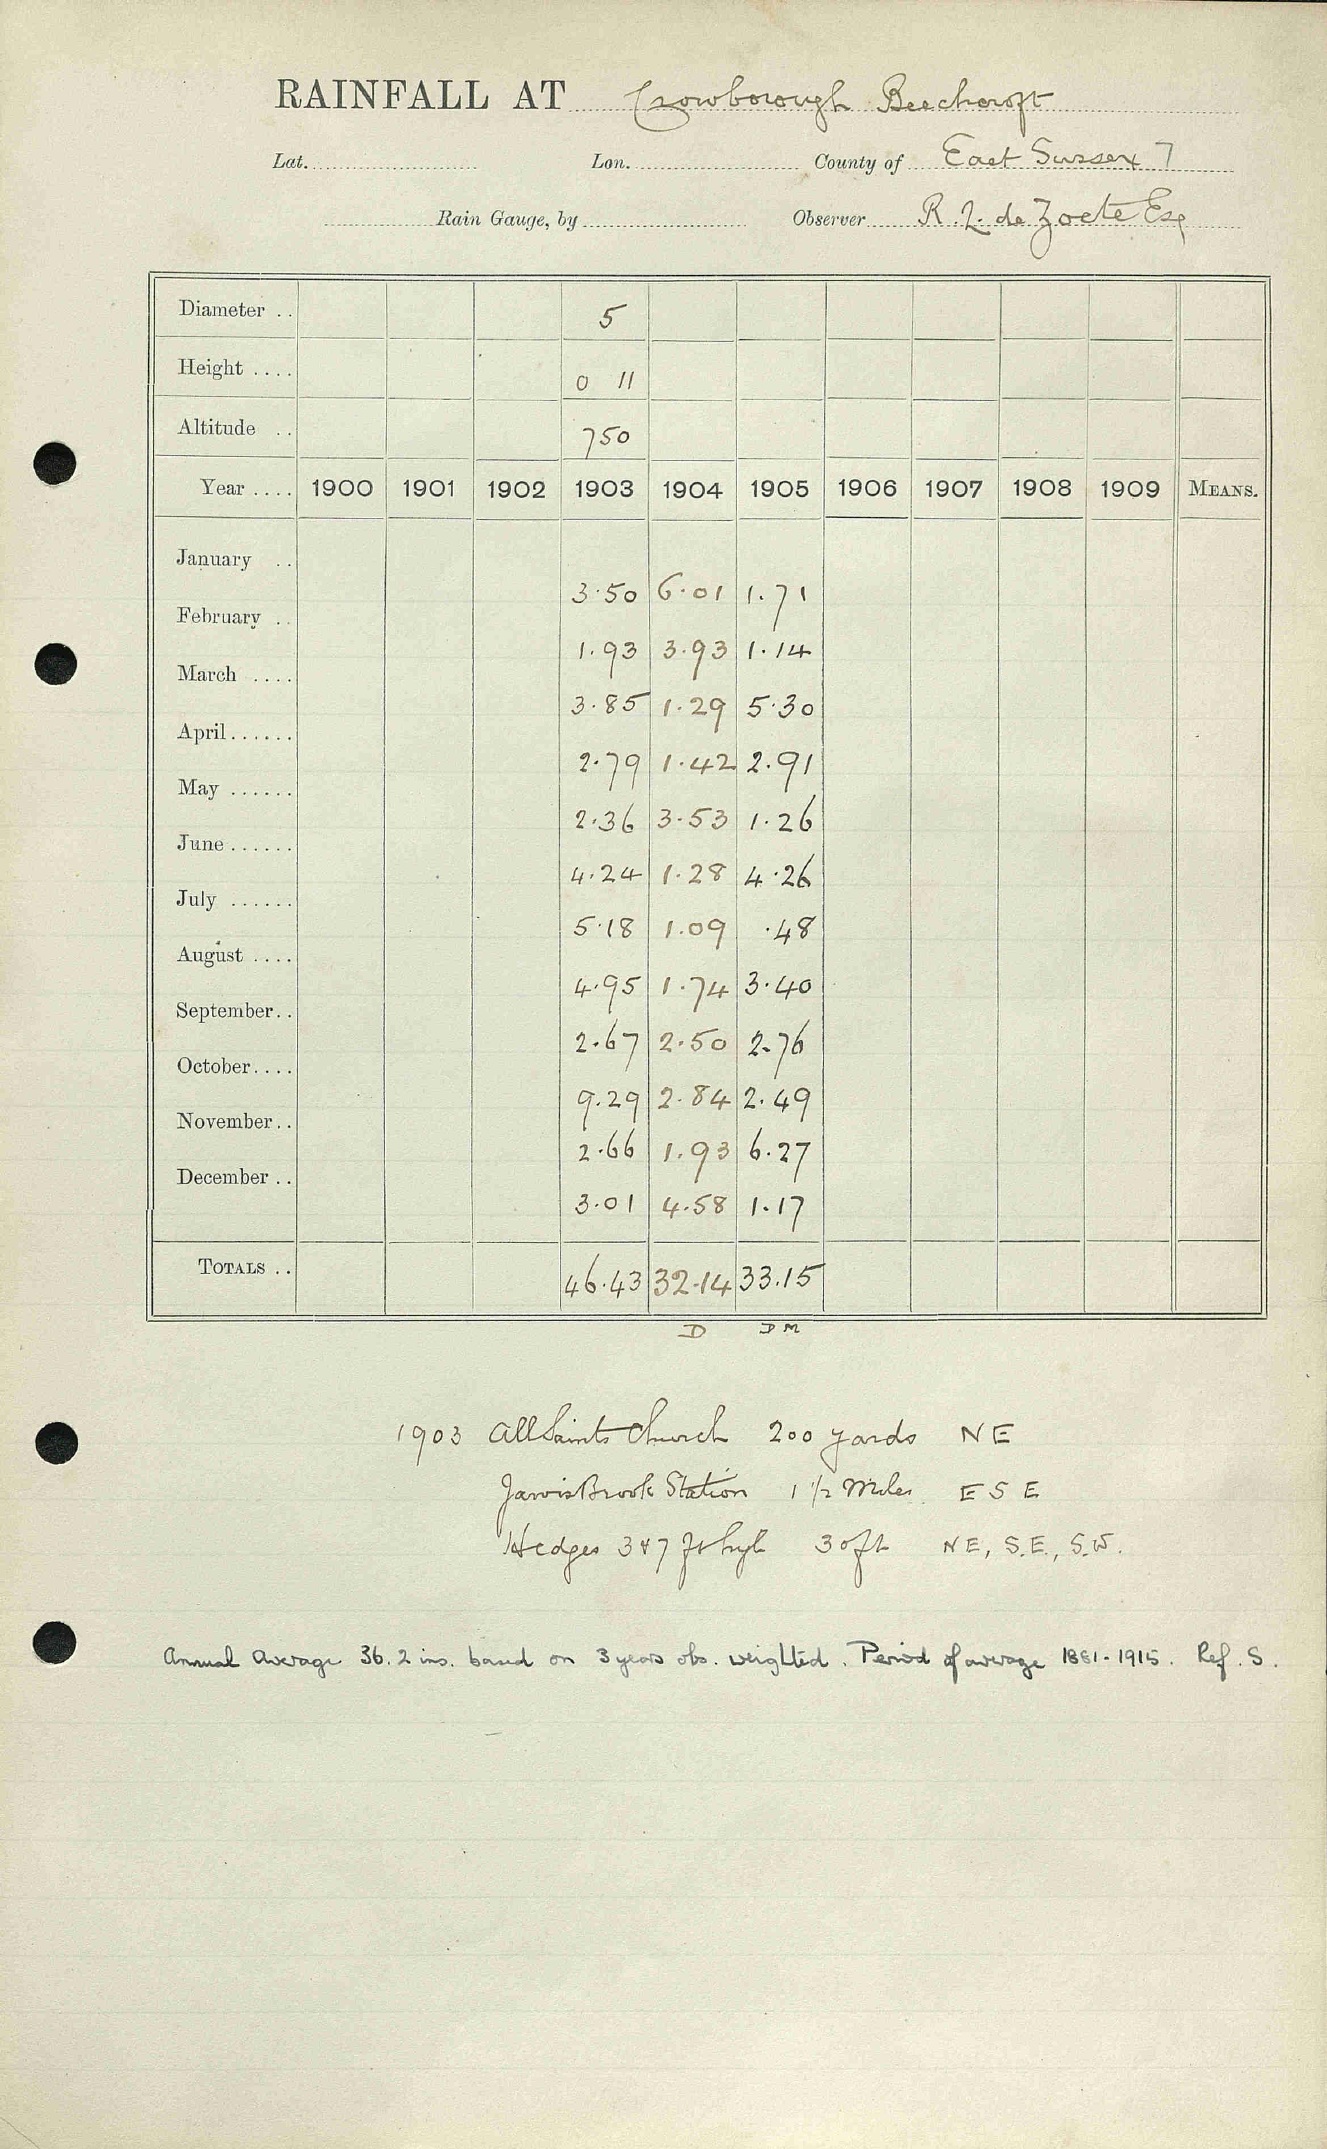 RAINFALL AT Crowborough Beechcroft
Lat. Lon. County of East Sussex 7
Rain Gauge, by Observer R. L. de Zoete Esq
Diameter .. 5
Height .... 0 11
Altitude .. 750
Year .... 1900 1901 1902 1903 1904 1905 1906 1907 1908 1909 MEANS.
January .. 3.50 6.01 1.71
February .. 1.93 3.93 1.14
March .... 3.85 1.29 5.30
April...... 2.79 1.42 2.91
May ...... 2.36 3.53 1.26
June ...... 4.24 1.28 4.26
July ...... 5.18 1.09 .48
August .... 4.95 1.74 3.40
September.. 2.67 2.50 2.76
October.... 9.29 2.84 2.49
November.. 2.66 1.93 6.27
December .. 3.01 4.58 1.17
TOTALS .. 46.43 32.14 33.15
D DM
1903 All Saints Church 200 yards NE
Jarvis Brook Station 1 1/2 Miles ESE
Hedges 3 & 7 ft high 30 ft NE, S.E., S.W.
Annual Average 36.2 ins. based on 3 years obs. weighted. Period of average 1881-1915. Ref. S.